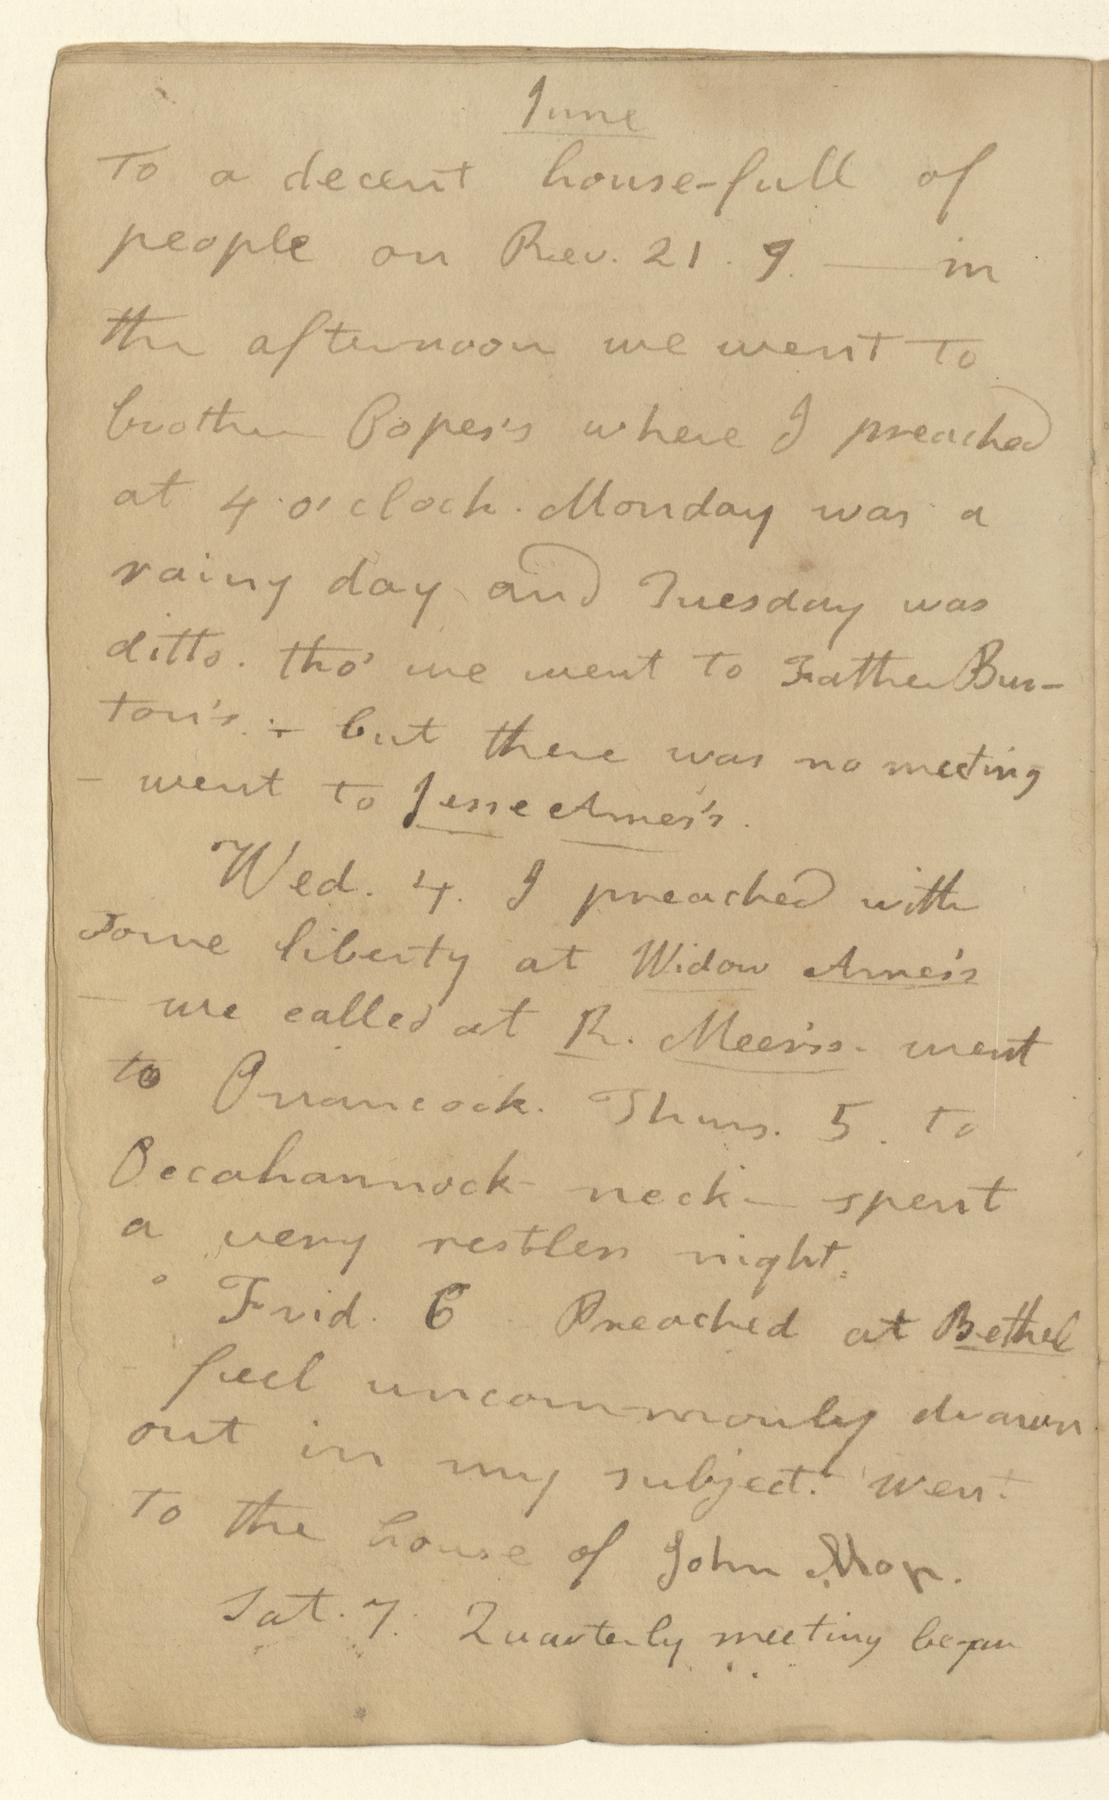 June
To a decent house-full of
people on Rev. 21. 9. — in
the afternoon we went to
brother Popes's where I preached
at 4 o'clock. Monday was a
rainy day and Tuesday was
ditto. tho' we went to Father Bur-
ton's. ÷ but there was no meeting
– went to Jesse Ames's.
Wed. 4. I preached with
some liberty at Widow Ames's
– we called at R. went
to Onancock. Thurs. 5. to
Occahannock neck — spent
a very restless night.
Frid. 6 Preached at Bethel
– feel uncommonly drawn
out in my subject. Went
to the house of John
Sat. 7. Quarterly meeting began